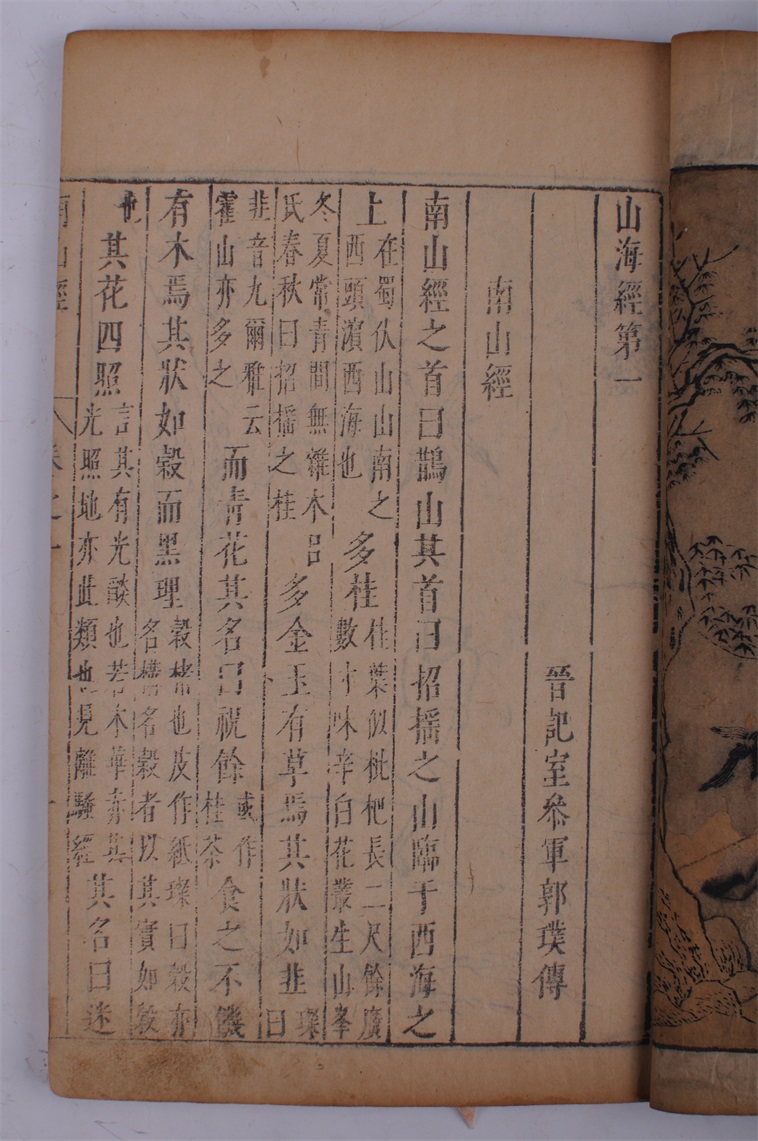 山海經第一
晉記室參軍郭璞傳
南山經
南山經之首曰鵲山其首曰招搖之山臨于西海之
上在蜀伏山山南之西頭濵西海也多桂桂葉似枇杷長二尺餘廣數寸味辛白花叢生山峯
冬夏常青間無雜木呂氏春秋曰招搖之桂多金玉有草焉其狀如韭璨曰
韭音九爾雅云霍山亦多之而青花其名曰祝餘或作桂荼食之不饑
有木焉其狀如榖而黑理榖楮也皮作紙璨曰榖亦名構名榖者以其實如榖
也其花四照言其有光談也若木華赤其光照地亦此類也見離騷經其名曰迷
南山經 卷之一 一